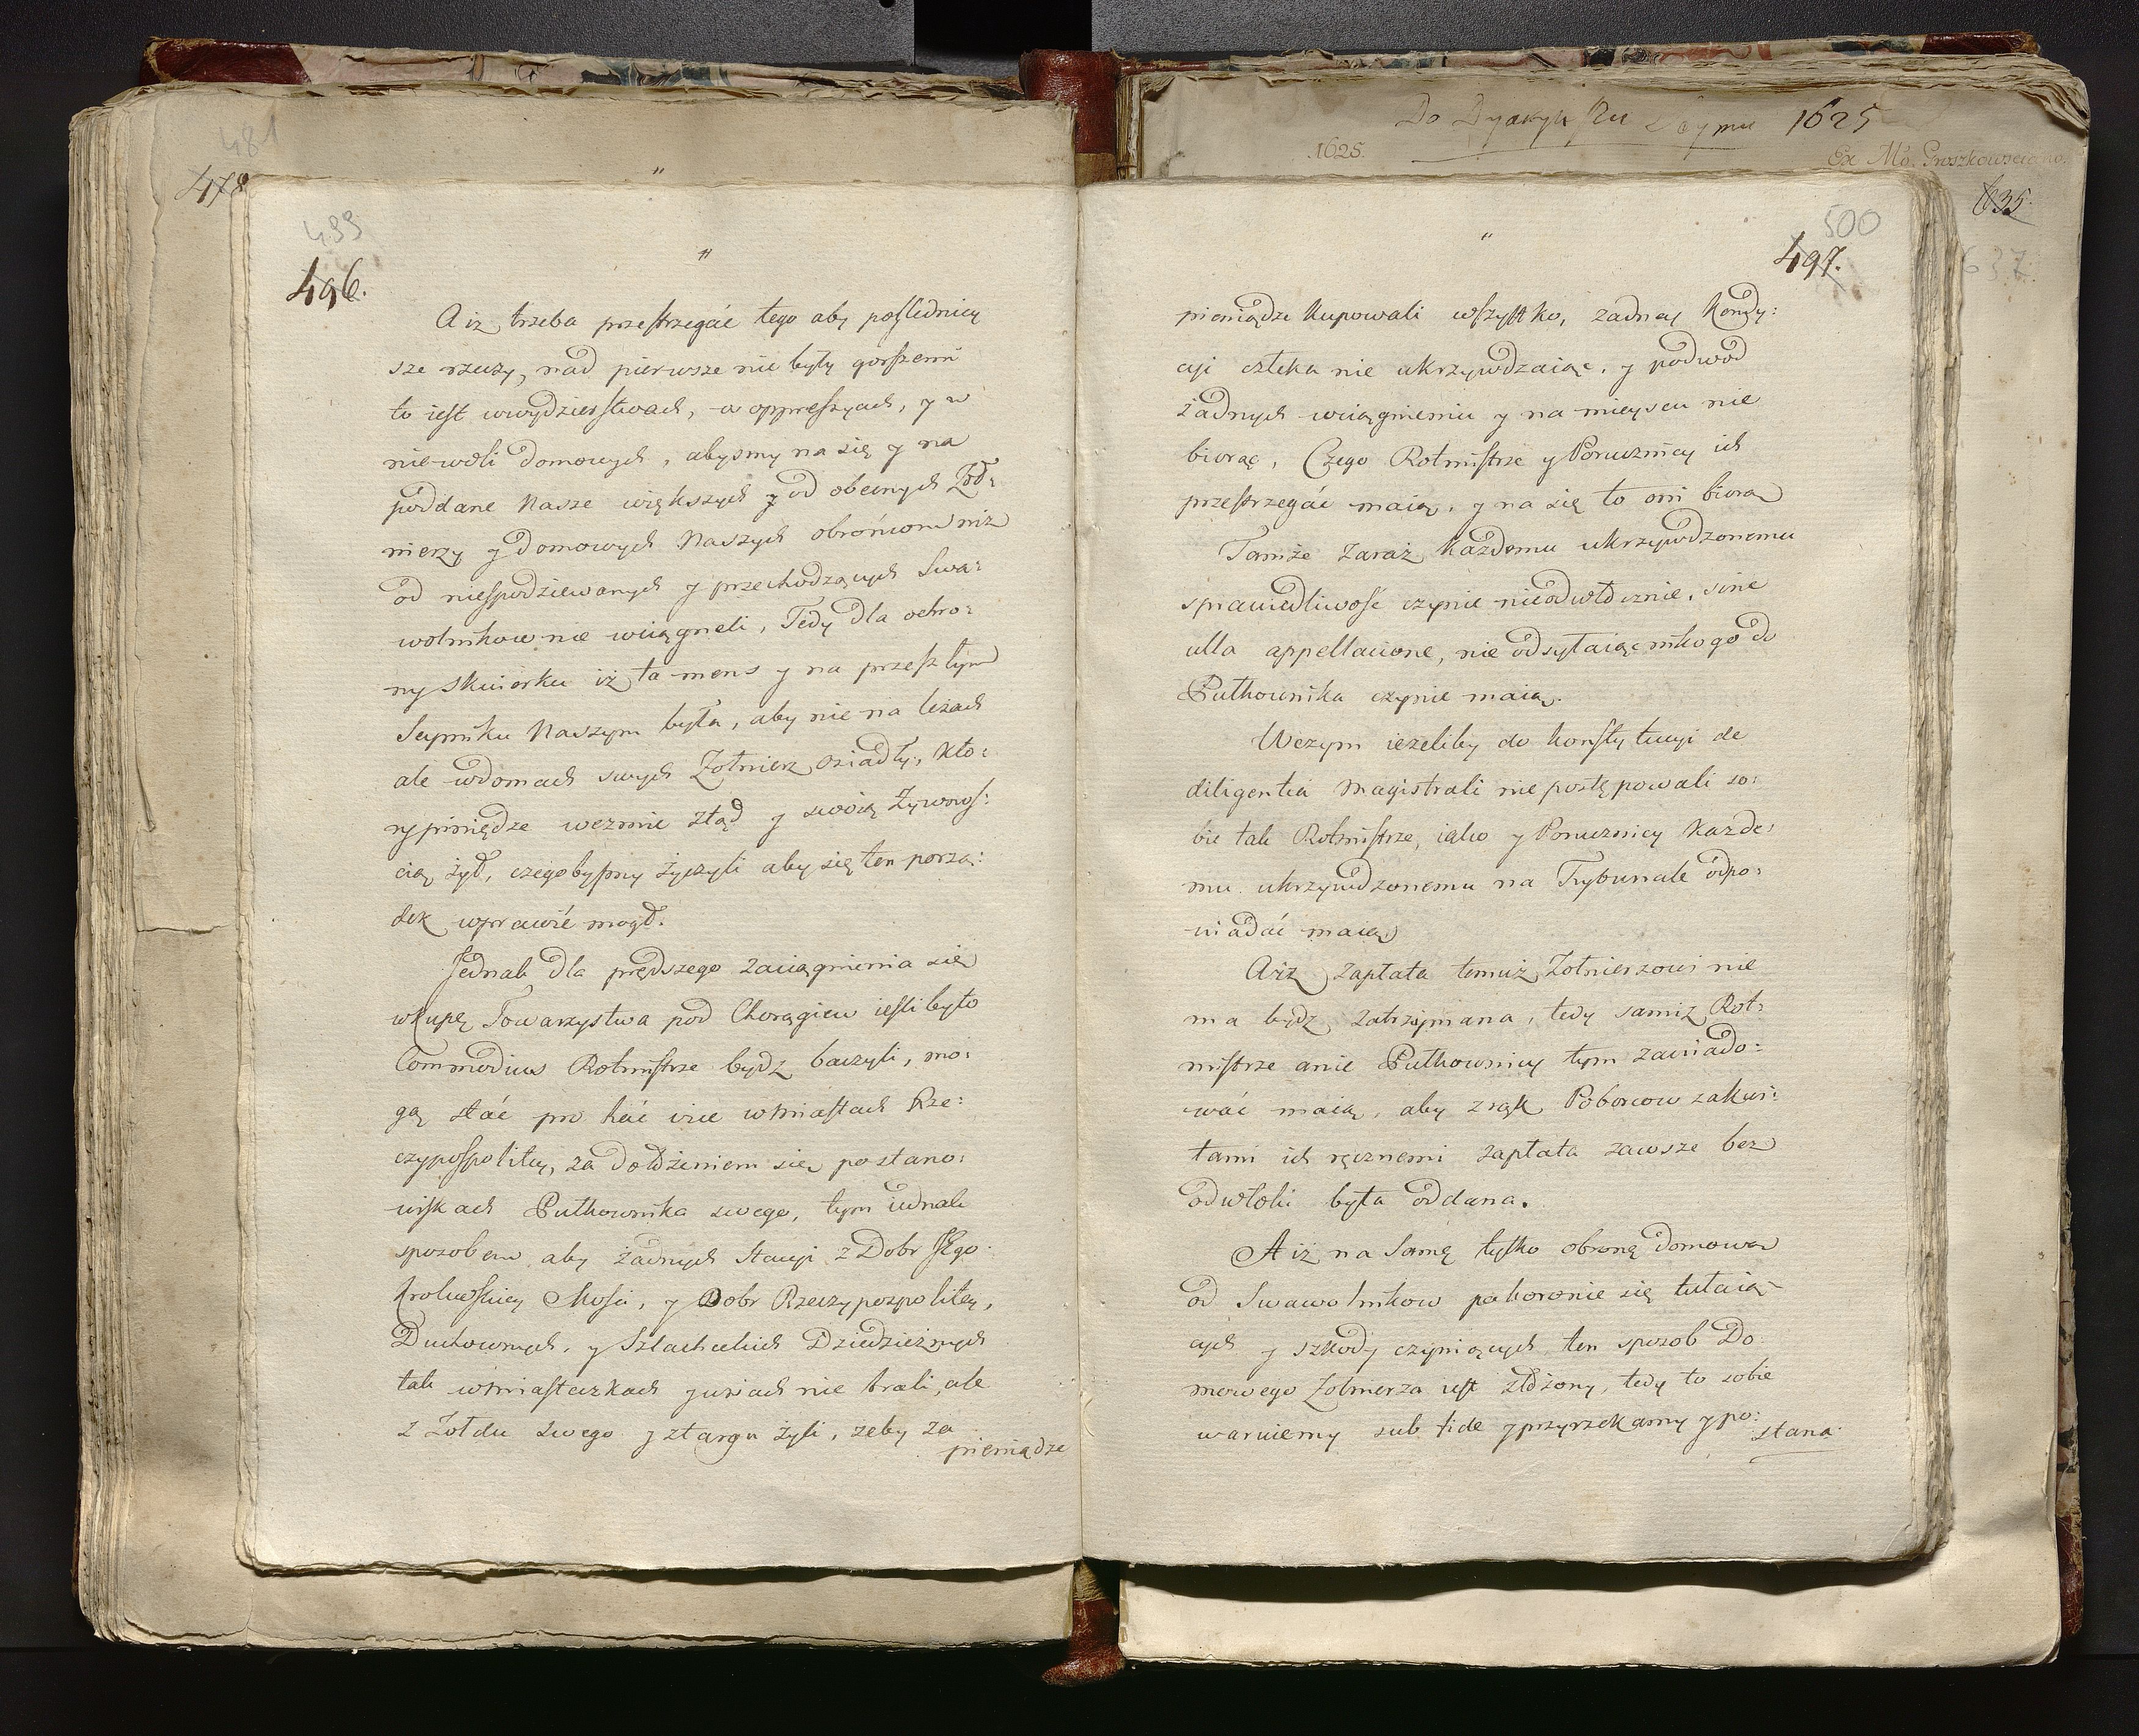 481
478
"
499
496.
"
A iz trzeba przestrzegać tego aby poslednieÿ
sze rzeczy, nad pierwsze nie były gorszemi
to iest wwydzierstwach, w oppressyach, y w
niewoli domowych, abysmy na się y na
poddane Nasze większych y od obecnych Żoł:
nierzy y domowych Naszych obrońcow niz
od niespodziewanych y przechodzących Swa:
wolnikow nie wciągneli, Tedy dla ochro:
ny Skwierku iż ta mens y na przeszłym
Seymiku Naszym była, aby nie na leżach
ale wdomach swych Żołnierz osiadły, kto:
ry pieniędze wezmie ztąd y swoią Żywnos:
cią żył, czegobysmy życzyli aby się ten porzą:
dek wprawić mogł.
Jednak dla prędszego zaciągnienia się
wkupę Towarzystwa pod Chorągiew iesliby to
Commodius Rotmistrze bydz baczyli, mo:
gą stać pro hac vice wmiastach Rze:
czypospolitey, za dołożeniem się, po stano:
wiskach Pułkownika swego, tym iednak
sposobem aby żadnych Stacyi z Dobr JEgo
Krolewskiey Mosci, y Dobr Rzeczypospolitey,
Duchownych, y Szlacheckich Dziedzicznych
tak wmiasteczkach y wsiach nie brali, ale
z Żołdu swego y ztargu żyli, zeby za
pieniądze
Do Dyaryuszu Seymu 1625
1625.
Ex Mo. Proszkowsciano.
635.
637.
500
497.
"
pieniądze kupowali wszystko, zadney Kondy:
cyi człeka nie ukrzywdzaiąc, y podwod
żadnych wciągnieniu y na mieyscu nie
biorąc, Czego Rotmistrze y Porucznicy ich
przestrzegać maią, y na się to oni biorą
Tamże zaraz każdemu ukrzywdzonemu
sprawiedliwość czynić nieodwłocznie, sine
ulla appellacione, nie odsyłaiąc nikogo do
Pułkownika czynić maią.
Wczym iezeliby do konstytucyi de
diligentia Magistrali nie postępowali so:
bie tak Rotmistrze, iako y Porucznicy Kazde:
mu ukrzywdzonemu na Trybunale odpo:
wiadać maią
A iz zapłata temuż Żołnierzowi nie
ma bydz zatrzymana, tedy samiz Rot:
mistrze anie Pułkownicy tym zawiado:
wać maią, aby z rąk Poborcow zakwi:
tami ich ręcznemi zapłata zawsze bez
odwłoki była oddana.
A iż na Samę tylko obronę domową
od Swawolnikow pokoronie się tułaią
cych y szkody czyniących ten sposob Do
mowego Żołnierza iest złożony, tedy to sobie
waruiemy sub fide y przyrzekamy y po:
stana